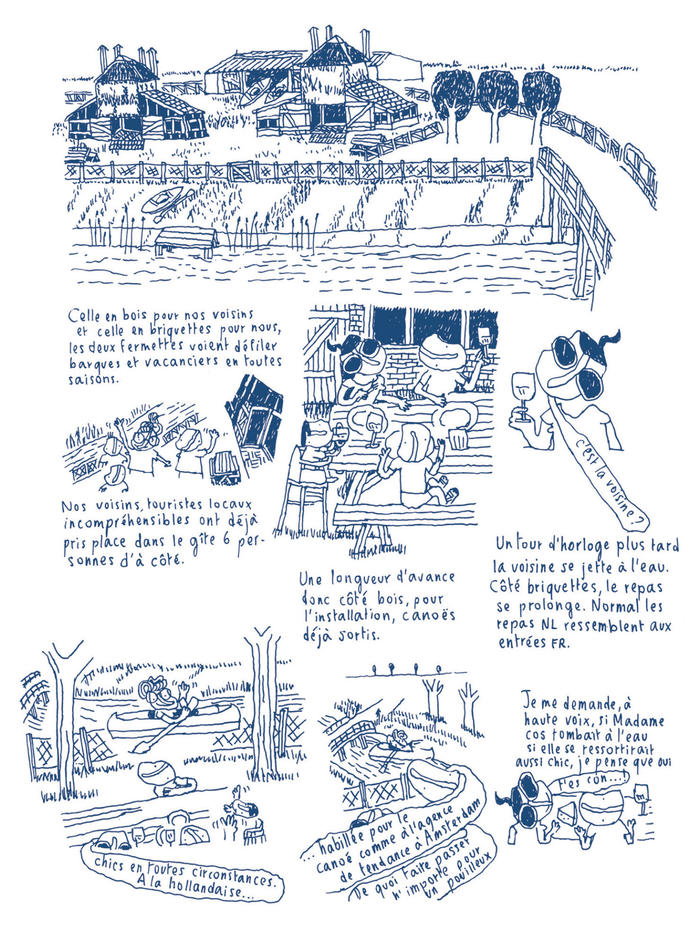 Celle en bois pour nos voisins
et celle en briquettes pour nous,
les deux fermettes voient défiler
barques et vacanciers en toutes
saisons.
Nos voisins, touristes locaux
incompréhensibles ont déjà
pris place dans le gîte 6 per-
sonnes d'à côté.
Une longueur d'avance
donc côté bois, pour
l'installation, canoës
déjà sortis.
c'est la voisine ?
Un tour d'horloge plus tard
la voisine se jette à l'eau.
Côté briquettes, le repas
se prolonge. Normal les
repas NL ressemblent aux
entrées FR.
chics en toutes circonstances.
A la hollandaise...
... habillée pour le
canoë comme à l'agence
de tendance à Amsterdam
De quoi faire passer
n'importe pour
un pouilleux
Je me demande, à
haute voix, si Madame
cos tombait à l'eau
si elle se ressortirait
aussi chic, je pense que oui
t'es con...